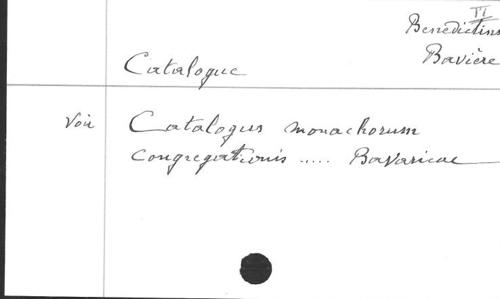 TT
Benedictins
Bavière
Catalogue
Voir Catalogus monachorum
congregationis ..... Bavaricae